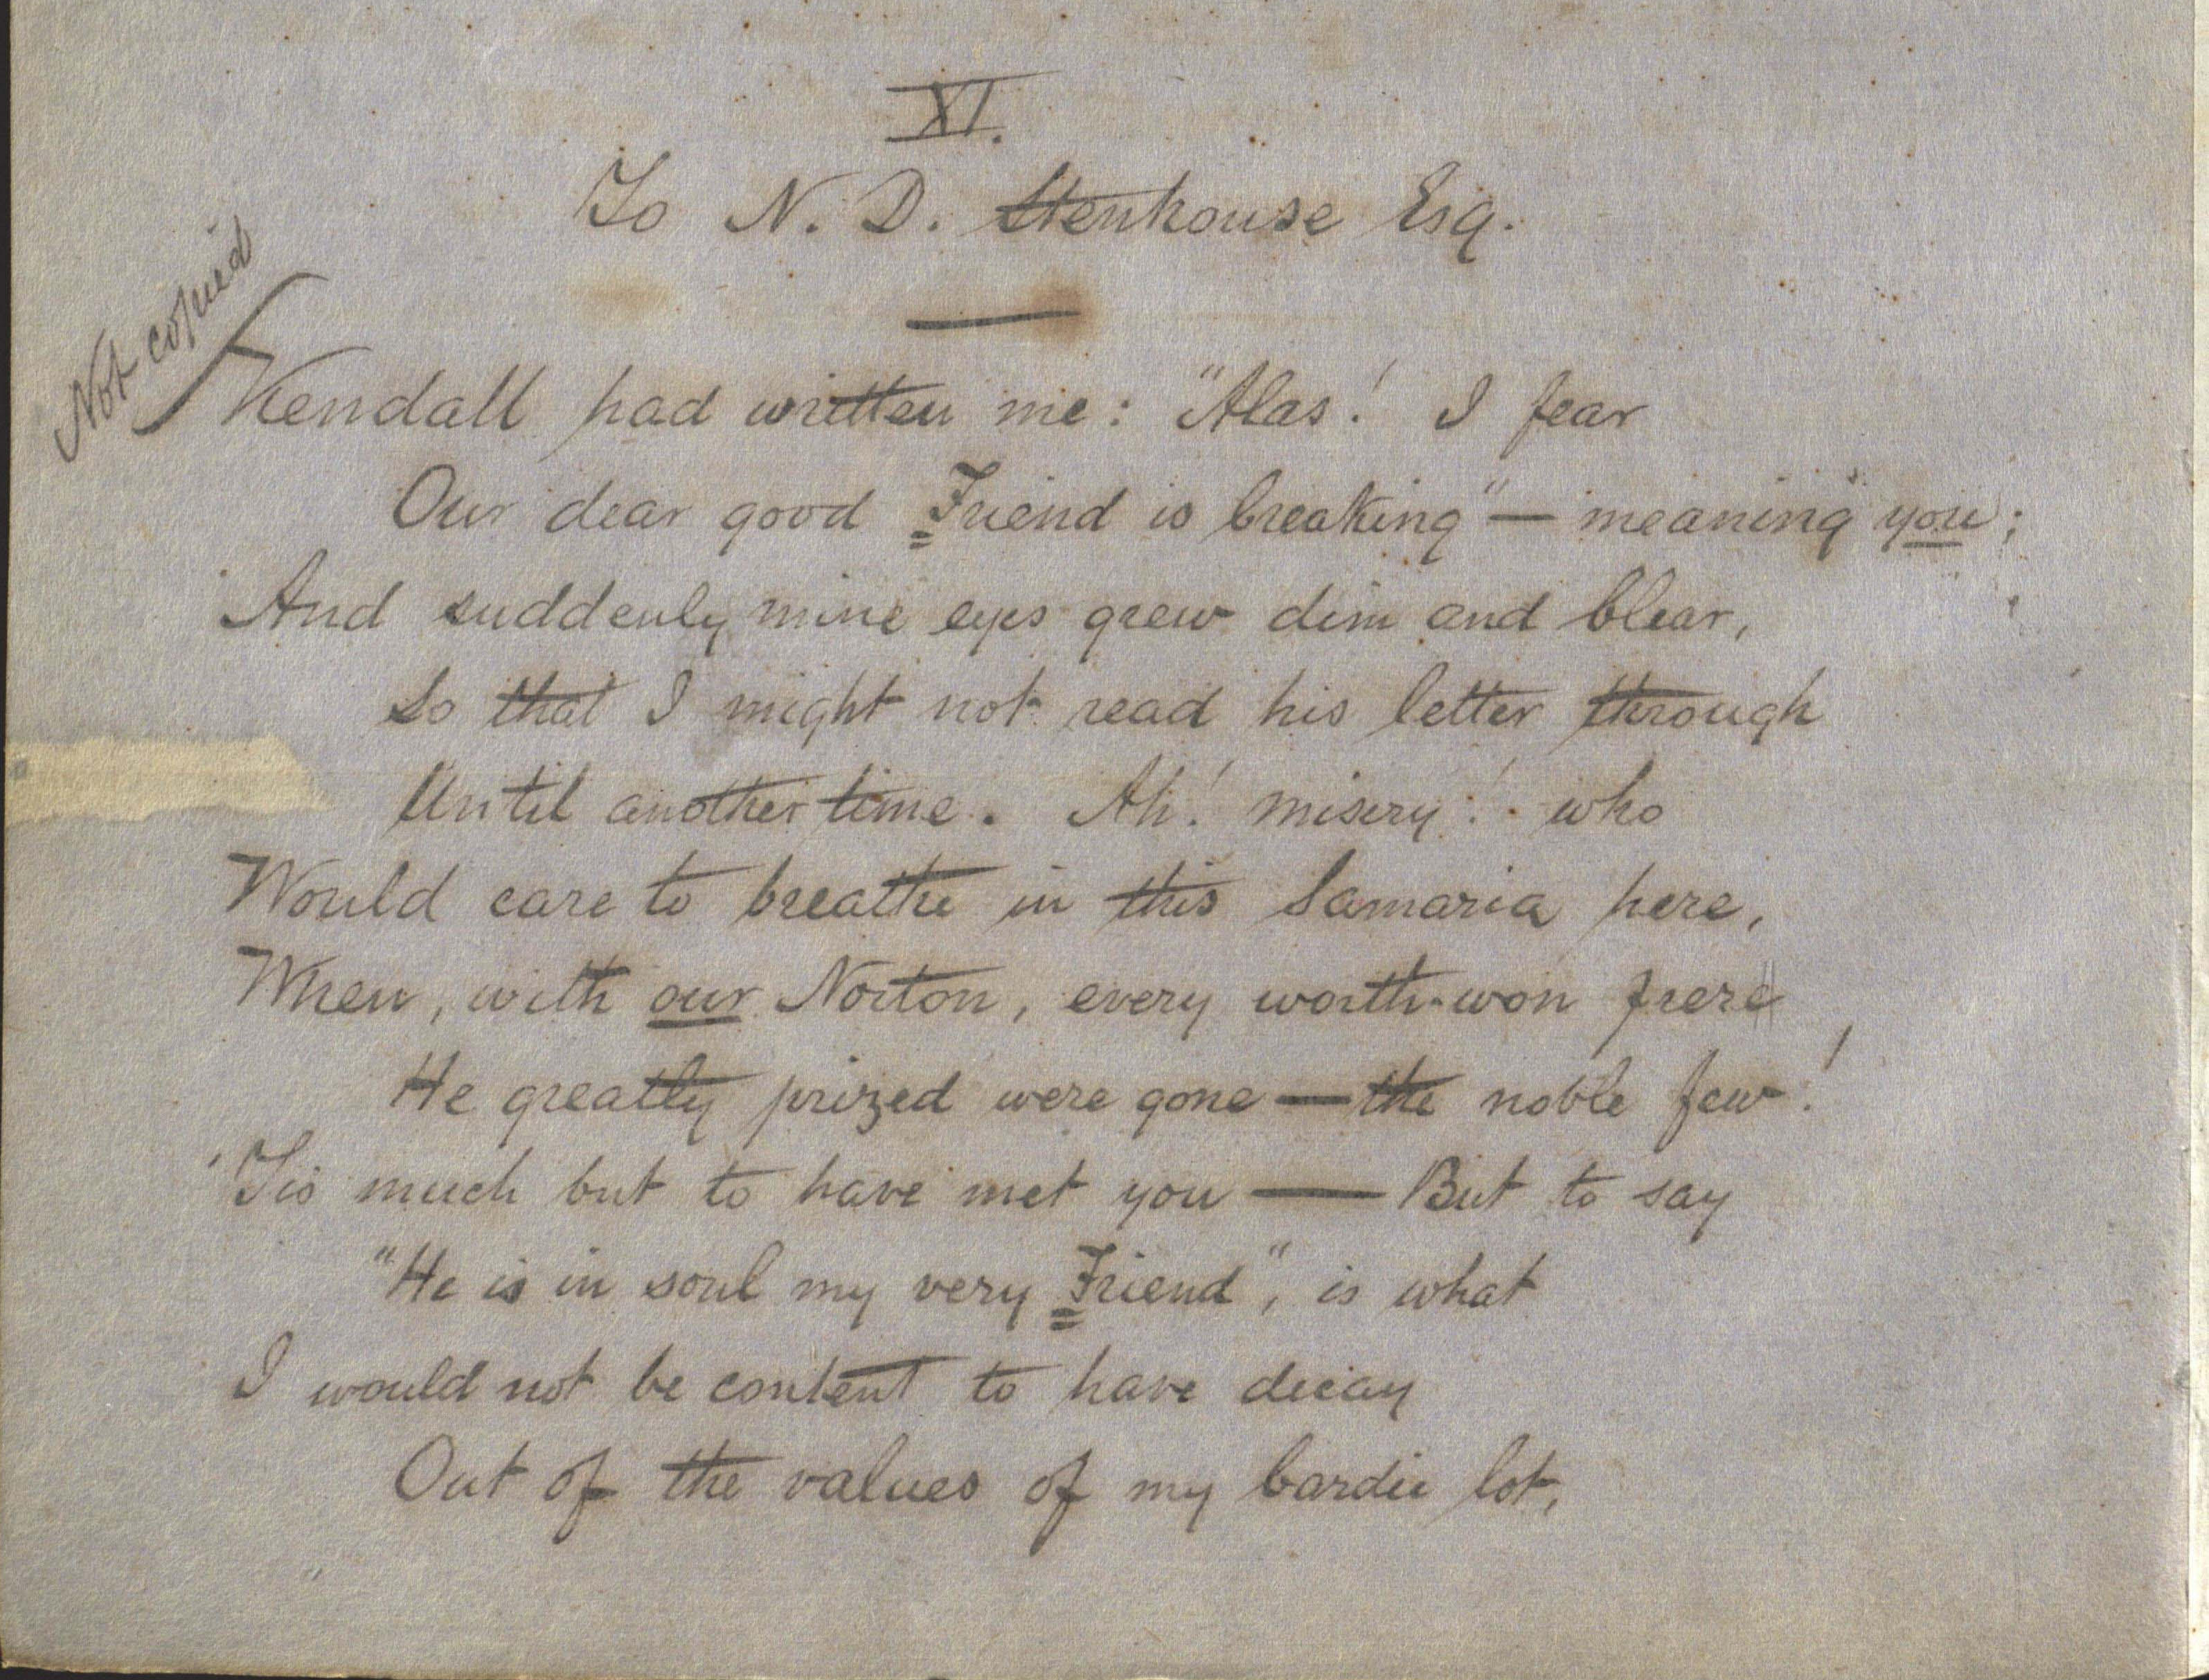 XI.
To N. D. Stenhouse Esq.
Not copied
Kendall had written me: "Alas! I fear
Our dear good Friend is breaking" — meaning you;
And suddenly mine eyes grew dim and blear,
So that I might not read his letter through
Until another time. Ah! misery! who
Would care to breathe in this Samaria here,
When, with our Norton, every worth-won frere
He greatly prized were gone — the noble few!
'Tis much but to have met you — But to say
"He is in soul my very Friend", is what
I would not be content to have decay
Out of the values of my bardic lot,